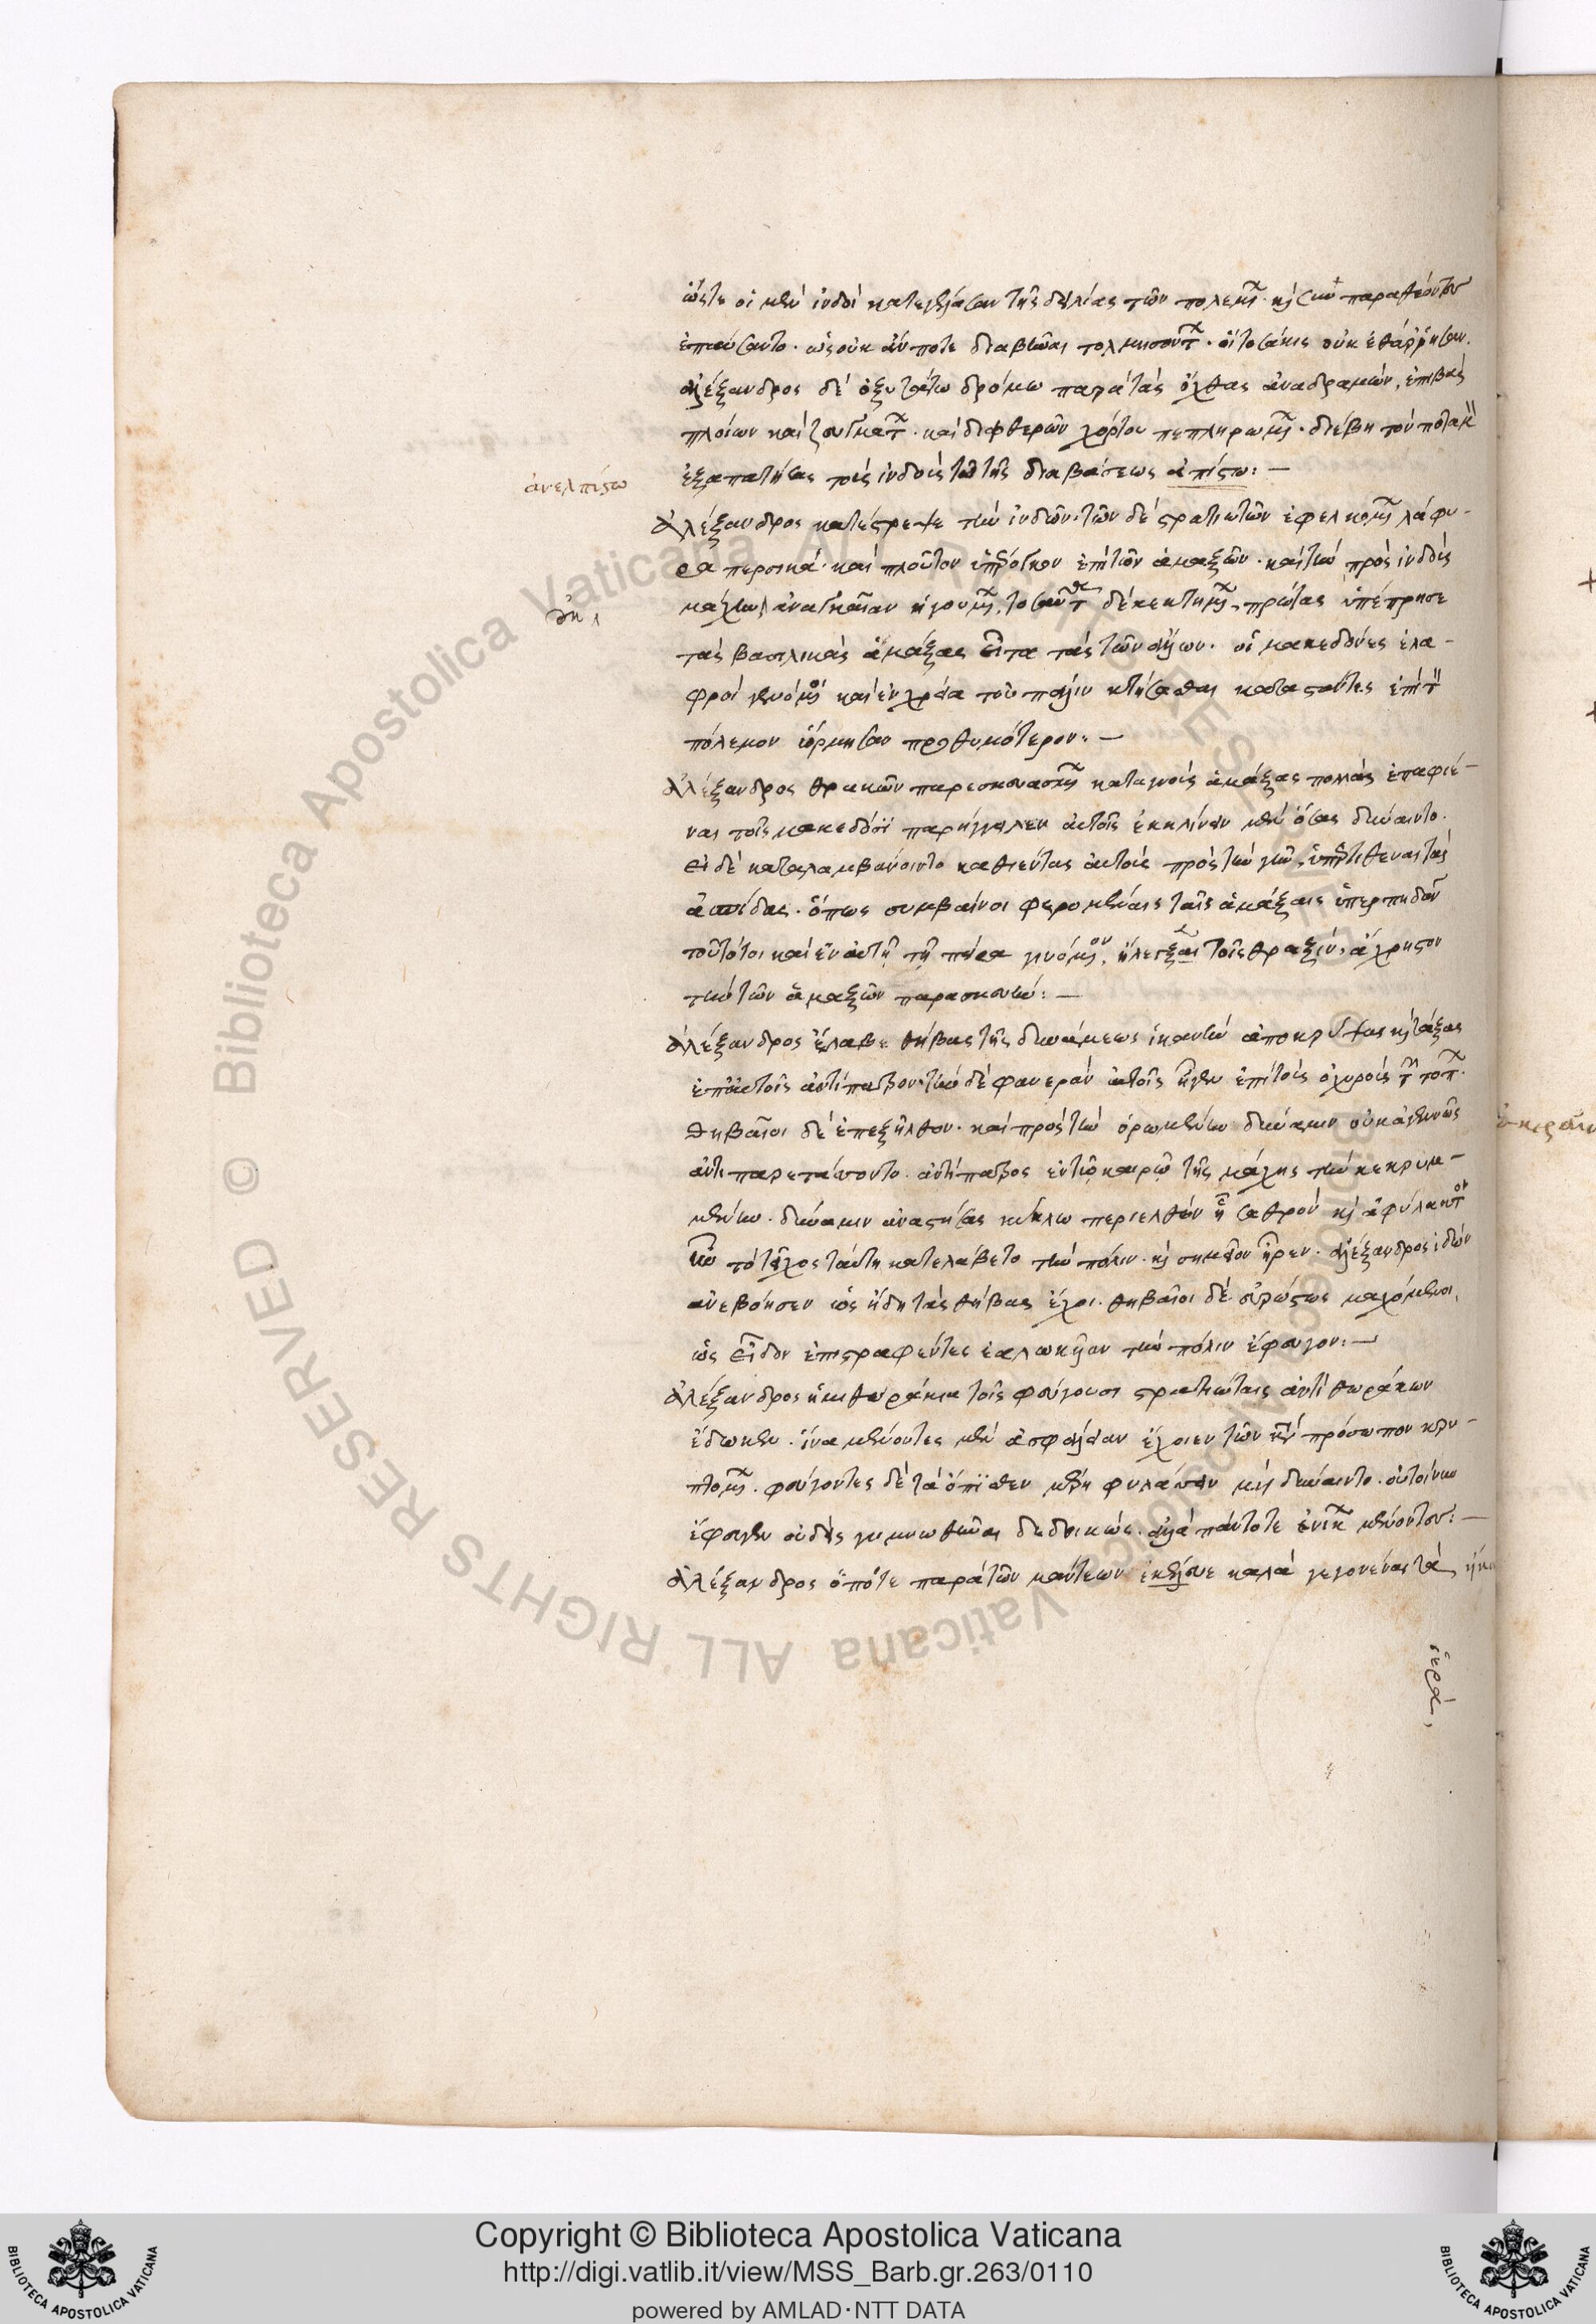 ὥστε οἱ μὲν ἰνδοὶ κατεγέλασαν τῆς δειλίας τῶν πολεμ καὶ συμπαραθέοντες
ἐπαύσαντο. ὡς οὐκ ἄν ποτε διαβῆναι τολμησόντ. οἳ τοσάκις οὐκ ἐθάρρησαν.
ἀλέξανδρος δὲ ὀξυτάτω δρόμω παρὰ τὰς ὄχθας ἀναδραμὼν, ἐπιβὰς
πλοίων καὶ ζευγματ. καὶ διφθερῶν χόρτου πεπληρωμ. διέβη τὸν ποταμ
ἀνελπίστω
ἐξαπατήσας τοὺς ἰνδοὺς τῶ τῆς διαβάσεως ἀπίστω:—
Ἀλέξανδρος κατέστρεψε τὴν ἰνδῶν. τῶν δὲ στρατιωτῶν ἐφελκομ λάφυ-
ρα περσικά. καὶ πλοῦτον ὑπέρογκον ἐπὶ τῶν ἁμαξῶν. καὶ τὴν πρὸς ἰνδοὺς
μάχην ἀναγκαίαν ἡγουμ, τοσαῦτ δὲ κεκτημ, πρώτας ὑπέπρησε
τὰς βασιλικὰς ἁμάξας εἶτα τὰς τῶν ἄλλων. οἱ μακεδόνες ἐλα-
φροὶ γενόμοι καὶ ἐν χρεία τοῦ πάλιν κτήσασθαι καταστάντες ἐπὶ τ
πόλεμον ὥρμησαν προθυμότερον:—
Ἀλέξανδρος θρακῶν παρεσκευασμ καταγνοὺς ἁμάξας πολλὰς ἐπαφιέ-
ναι τοῖς μακεδόσι παρήγγειλεν αὐτοῖς ἐκκλίνειν μὲν ὅσας δύναιντο.
εἰ δὲ καταλαμβάνοιντο καθιέντας αὐτοὺς πρὸς τὴν γῆν, ὑπερτιθέναι τὰς
ἀσπίδας. ὅπως συμβαίνοι φερομέναις ταῖς ἁμάξαις ὑπερπηδᾶν
τοῦτό τοι καὶ ἐν αὐτῆ τῆ πείρα γινόμον, ἤλεγξε τοῖς θραξὶν, ἄχρηστον
τὴν τῶν ἁμαξῶν παρασκευήν:—
Ἀλέξανδρος ἔλαβε θήβας τῆς δυνάμεως ἱκανὴν ἀποκρύψας καὶ τάξας
ἐπ' αὐτοῖς ἀντίπατρον. τὴν δὲ φανερὰν αὐτὸς ἦγεν ἐπὶ τοὺς ὀχυροὺς τ τοπ.
θηβαῖοι δὲ ἐπεξῆλθον. καὶ πρὸς τὴν ὁρωμένην δύναμιν οὐκ ἀγεννῶς
ἀντιπαρετάττοντο. ἀντίπατρος ἐν τῶ καιρῶ τῆς μάχης τὴν κεκρυμ-
μένην. δύναμιν ἀναστήσας κύκλω περιελθὼν ἧ σαθρὸν καὶ ἀφύλακτον
ἦν τὸ τεῖχος ταύτη κατελάβετο τὴν πόλιν. καὶ σημεῖον ἦρεν. ἀλέξανδρος ἰδὼν
ἀνεβόησεν ὡς ἤδη τὰς θήβας ἔχοι. θηβαῖοι δὲ εὐρώστως μαχόμενοι,
ὡς εἶδον ἐπιστραφέντες ἑαλωκυῖαν τὴν πόλιν ἔφευγον:—
Ἀλέξανδρος ἡμιθωράκια τοῖς φεύγουσι στρατιώταις ἀντὶ θωράκων
ἔδωκεν. ἵνα μένοντες μὲν ἀσφάλειαν ἔχοιεν τῶν κατὰ πρόσωπον κρυ-
πτομ. φεύγοντες δὲ τὰ ὄπισθεν μέρη φυλάττειν μὴ δύναιντο.
ἔφευγεν οὐδεὶς γυμνωθῆναι δεδοικώς. ἀλλὰ πάντοτε ἐνίκ μένοντες:—
Ἀλέξανδρος ὁπότε παρὰ τῶν μάντεων καλὰ γεγονέναι τὰ
ἱερά,